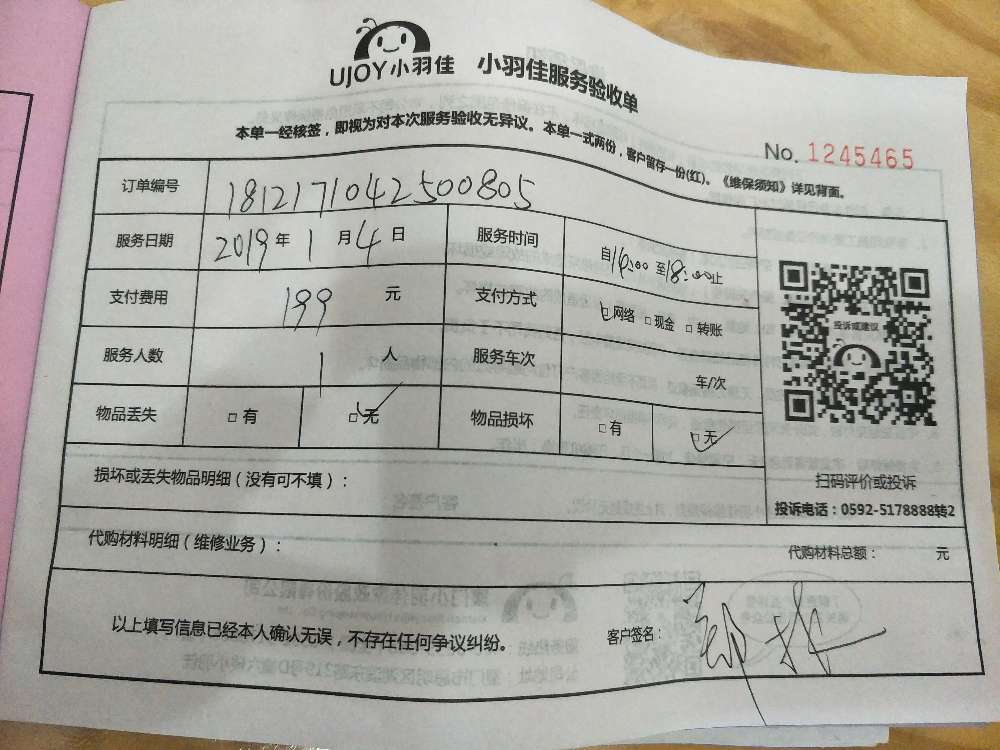 UJOY小羽佳 小羽佳服务验收单
本单一经核签，即视为对本次服务验收无异议。本单一式两份，客户留存一份(红)。《维保须知》详见背面。
No. 1245465
订单编号 1812171042500805
服务日期 2019年1月4日 服务时间 自16:00至18:00止
支付费用 199 元 支付方式 网络 现金 转账
服务人数 1 人 服务车次 车/次
物品丢失 有 无 物品损坏 有 无
投诉或建议
扫码评价或投诉
投诉电话：0592-5178888转2
损坏或丢失物品明细（没有可不填）：
代购材料明细（维修业务）： 代购材料总额： 元
以上填写信息已经本人确认无误，不存在任何争议纠纷。 客户签名：